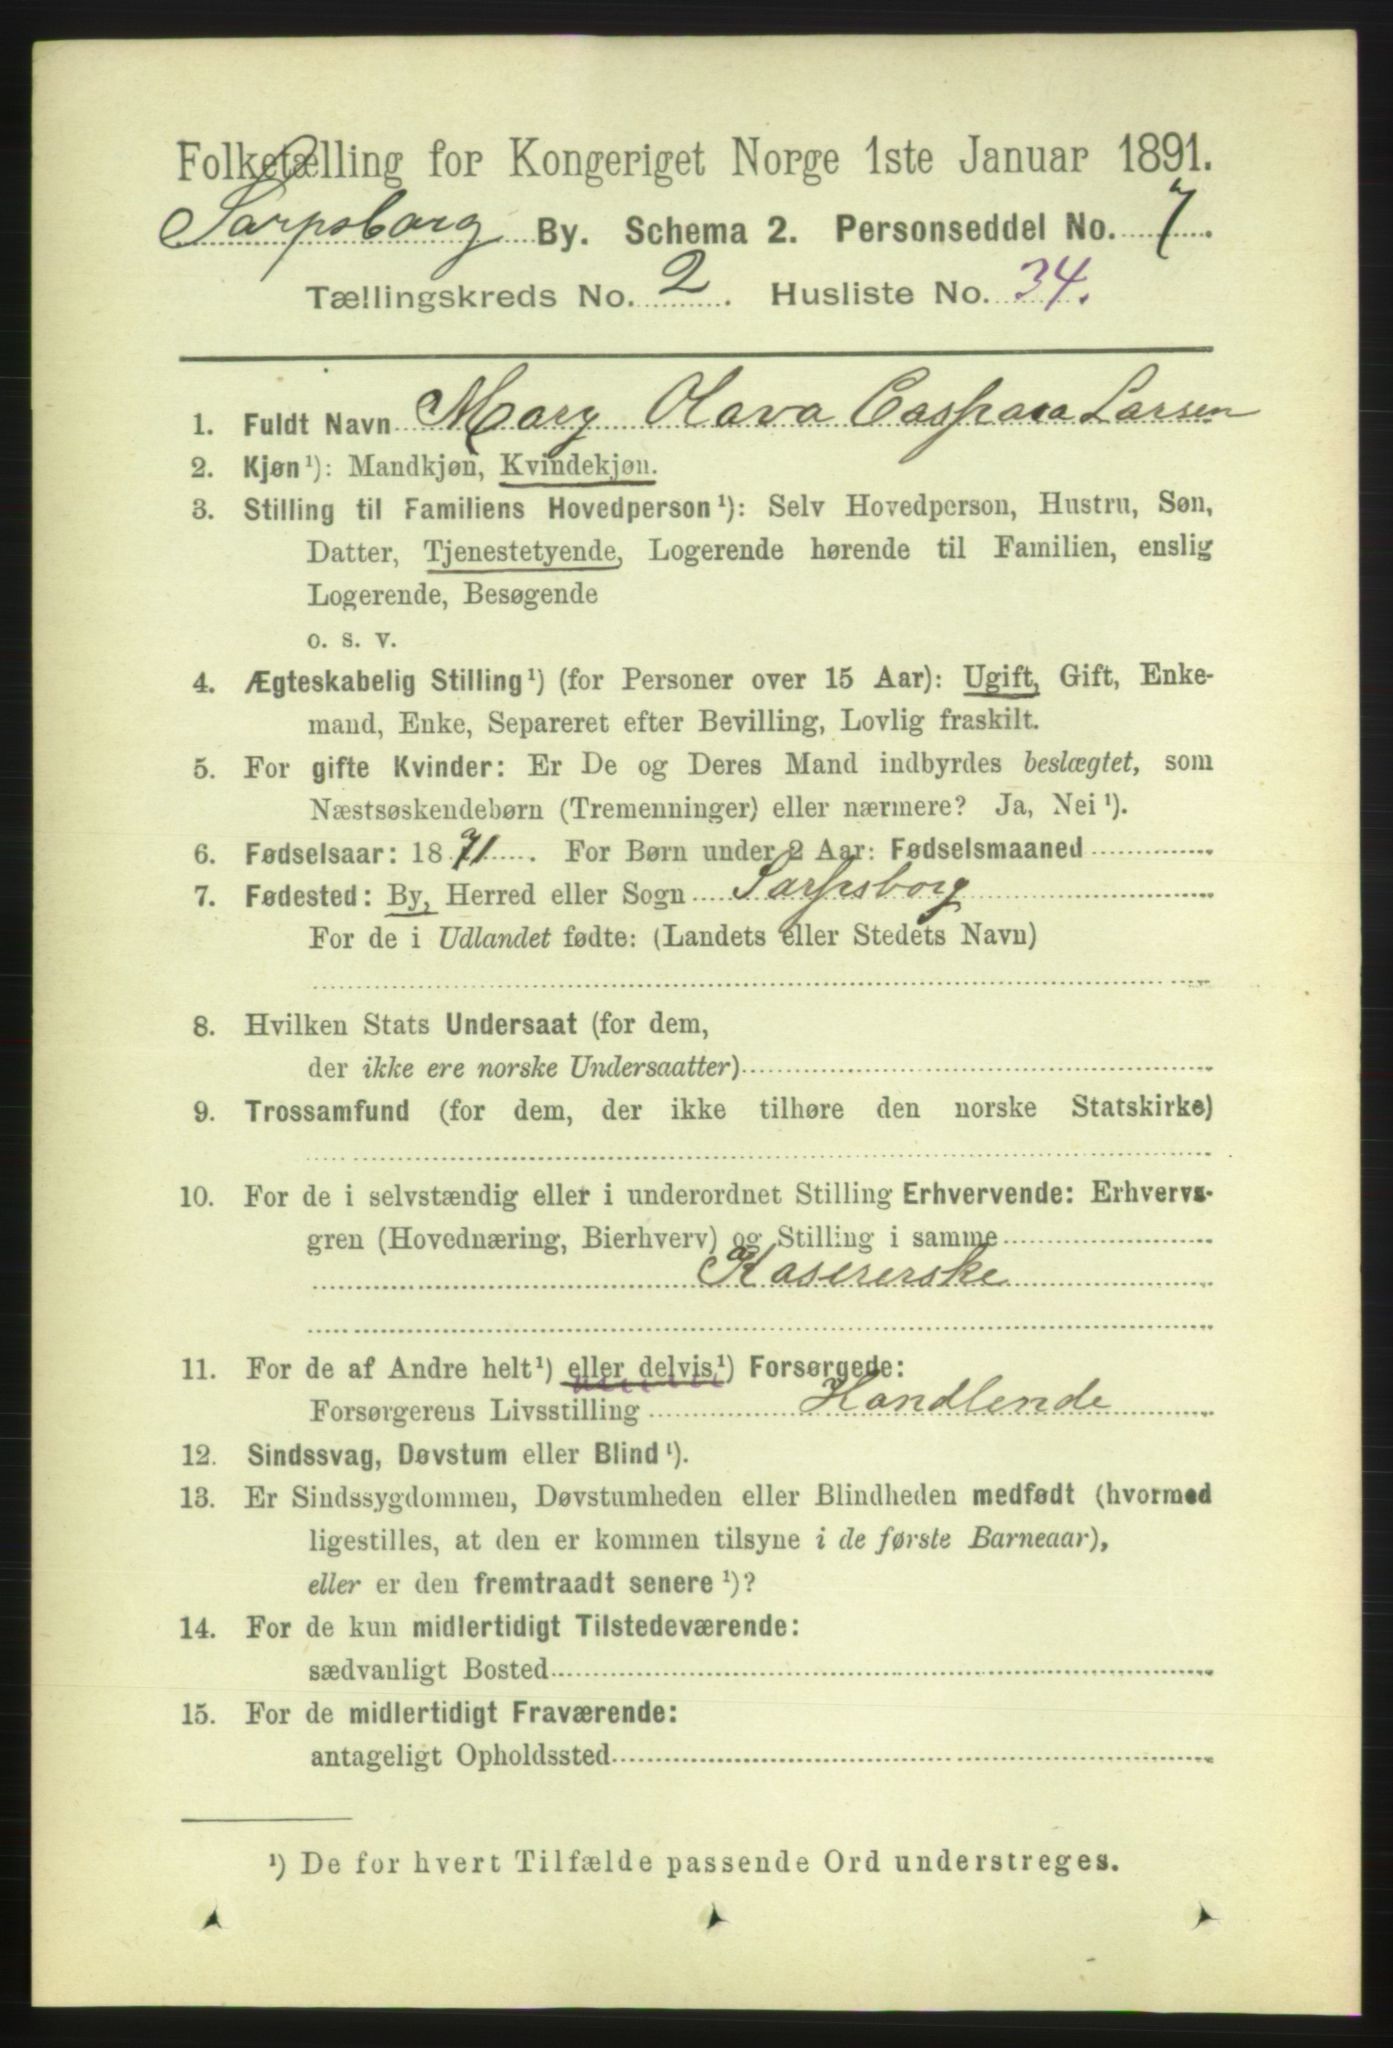 Folketælling for Kongeriget Norge 1ste Januar 1891.
Sarpsborg By. Schema 2. Personseddel No. 7.
Tællingskreds No. 2. Husliste No. 34.
1. Fuldt Navn Mary Olava Caspara Larsen
2. Kjøn¹): Mandkjøn, Kvindekjøn.
3. Stilling til Familiens Hovedperson¹): Selv Hovedperson, Hustru, Søn,
Datter, Tjenestetyende, Logerende hørende til Familien, enslig
Logerende, Besøgende
o. s. v.
4. Ægteskabelig Stilling¹) (for Personer over 15 Aar): Ugift, Gift, Enke-
mand, Enke, Separeret efter Bevilling, Lovlig fraskilt.
5. For gifte Kvinder: Er De og Deres Mand indbyrdes beslægtet, som
Næstsøskendebørn (Tremenninger) eller nærmere? Ja, Nei¹).
6. Fødselsaar: 1871. For Børn under 2 Aar: Fødselsmaaned
7. Fødested: By, Herred eller Sogn Sarpsborg
For de i Udlandet fødte: (Landets eller Stedets Navn)
8. Hvilken Stats Undersaat (for dem,
der ikke ere norske Undersaatter)
9. Trossamfund (for dem, der ikke tilhøre den norske Statskirke)
10. For de i selvstændig eller i underordnet Stilling Erhvervende: Erhvervs-
gren (Hovednæring, Bierhverv) og Stilling i samme
Kasererske
11. For de af Andre helt¹) eller delvis¹) Forsørgede:
Forsørgerens Livsstilling Handlende
12. Sindssvag, Døvstum eller Blind¹).
13. Er Sindssygdommen, Døvstumheden eller Blindheden medfødt (hvormed
ligestilles, at den er kommen tilsyne i de første Barneaar),
eller er den fremtraadt senere¹)?
14. For de kun midlertidigt Tilstedeværende:
sædvanligt Bosted
15. For de midlertidigt Fraværende:
antageligt Opholdssted
¹) De for hvert Tilfælde passende Ord understreges.